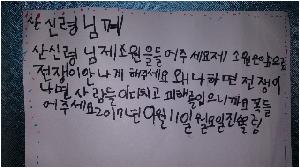 산신령님께
산신령님 제 소원을 들어주세요 제 소원은 앞으로
전쟁이 안 나게 해주세요 왜냐하면 전쟁이
나면 사람들이 다치고 피해를 입으니까요 꼭 들
어주세요 2017년 9월 11일 월요일 진